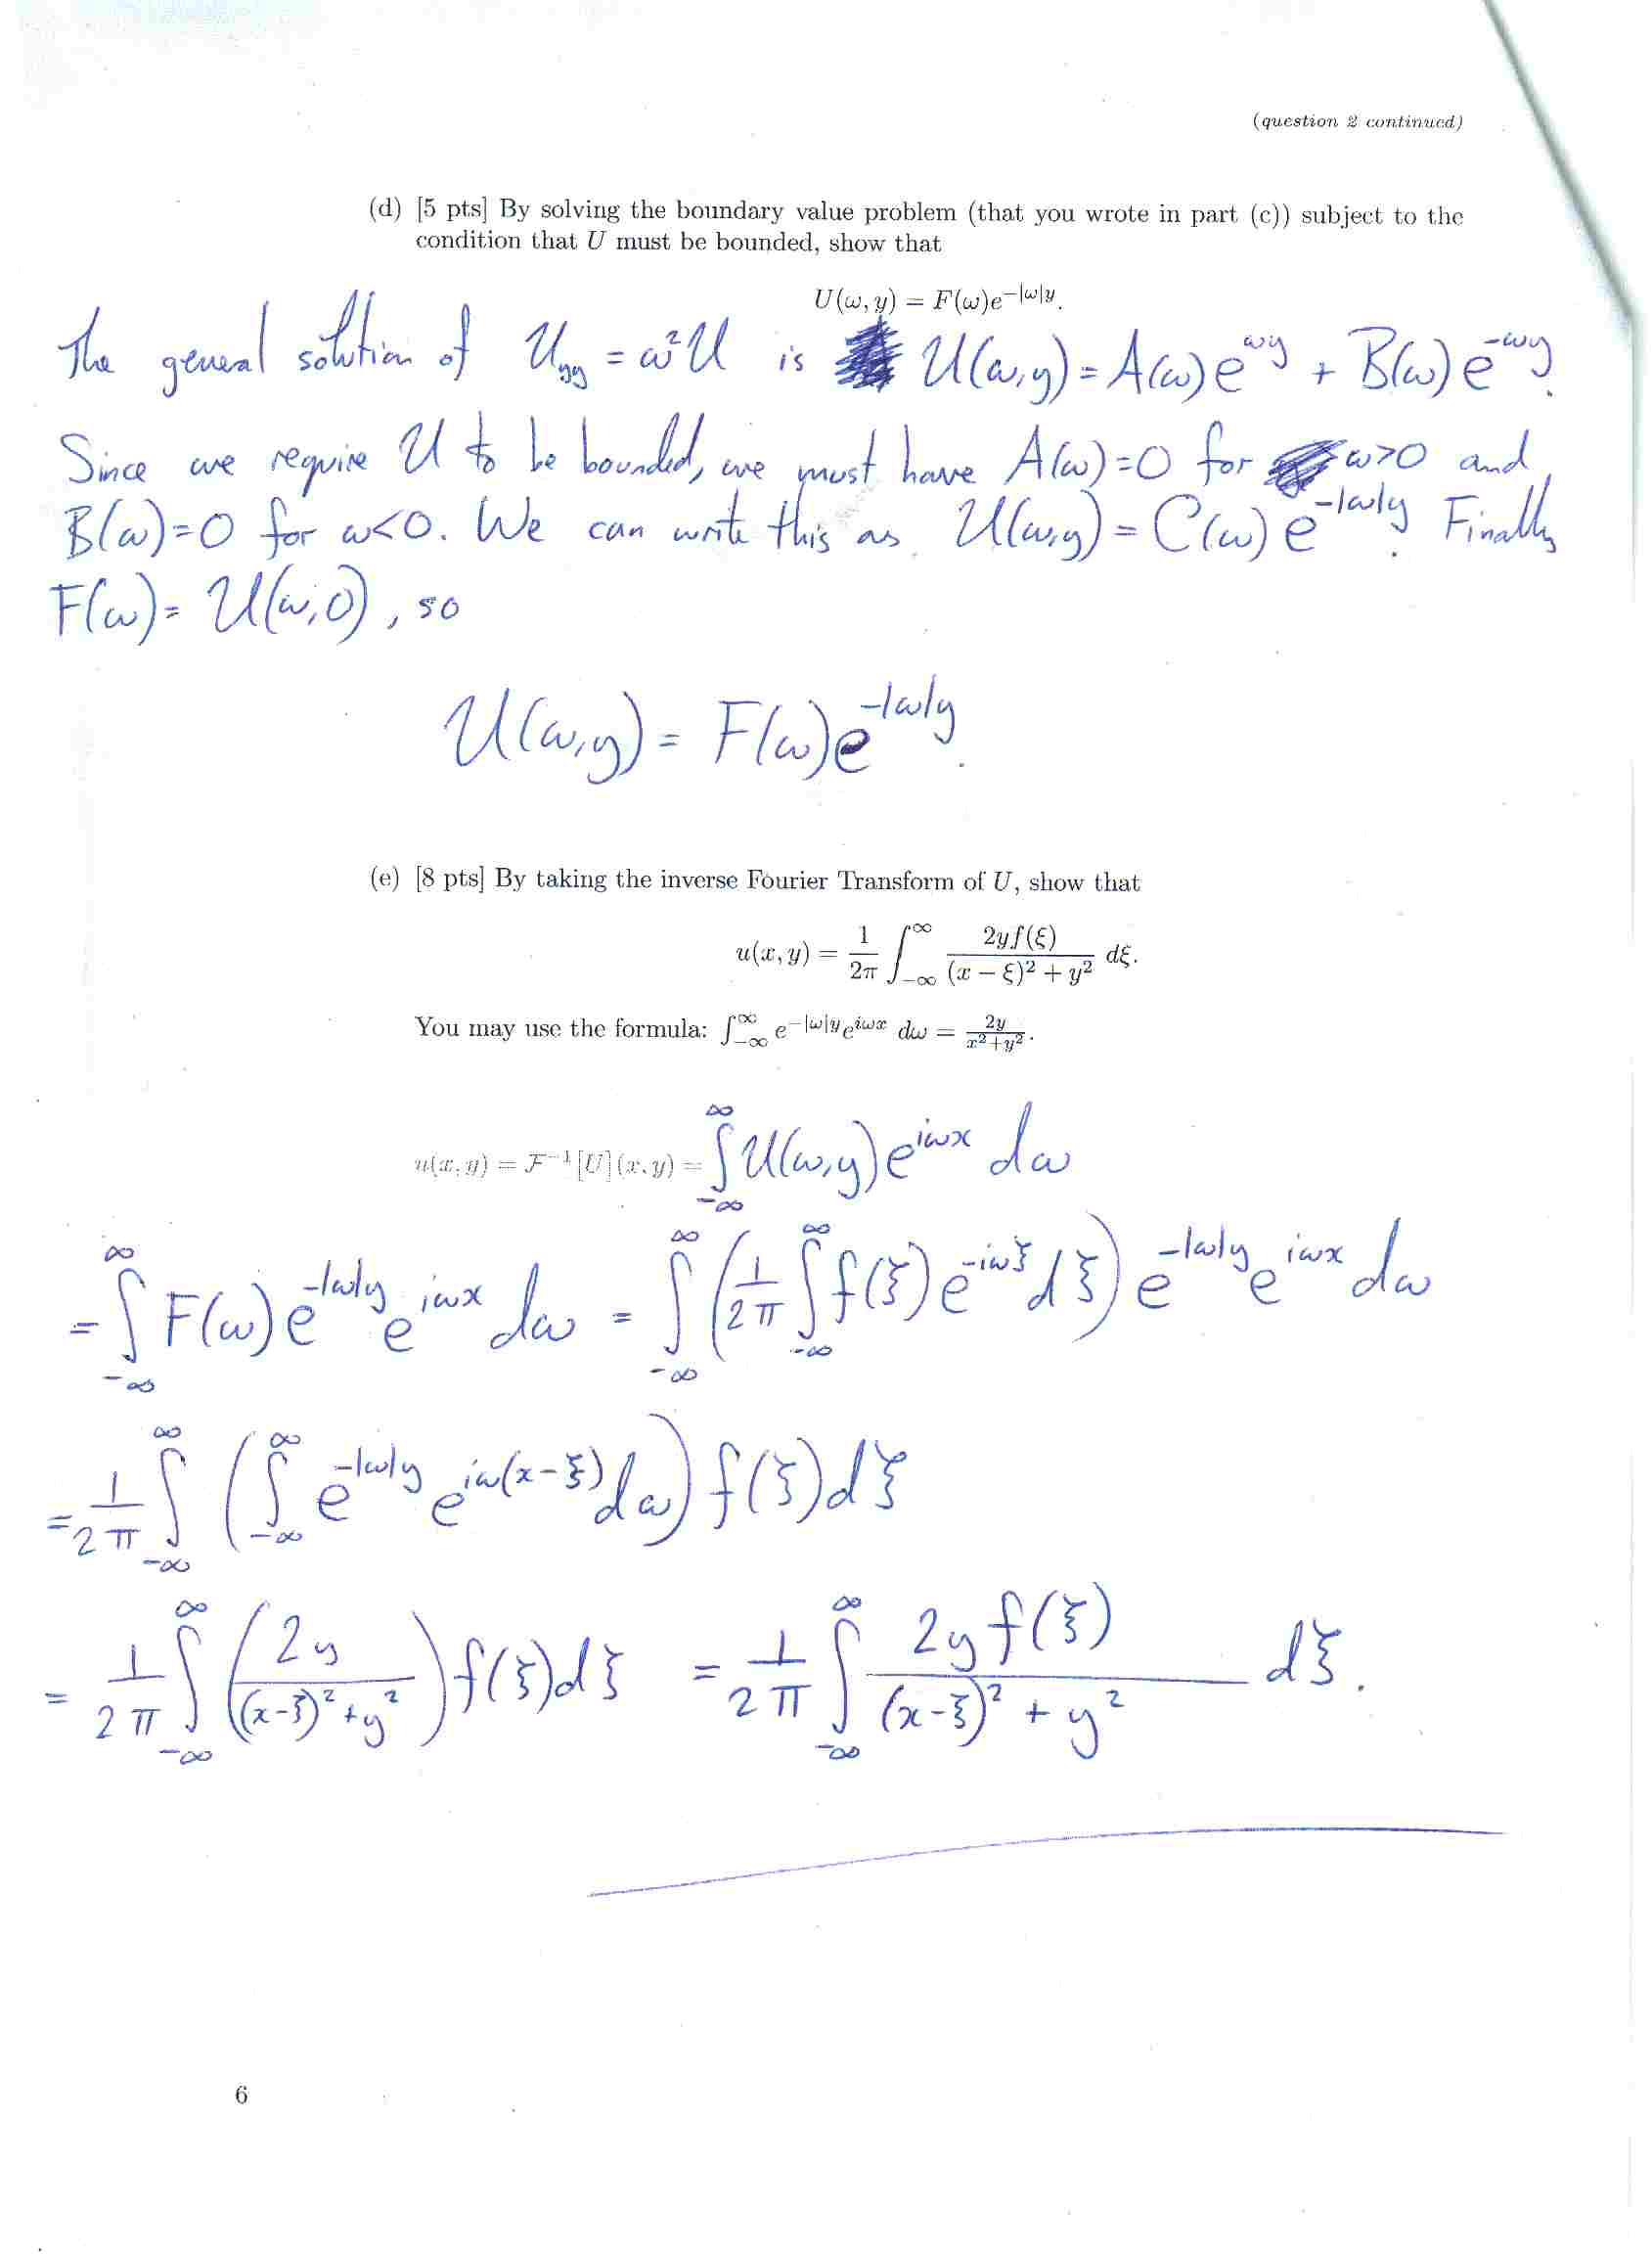 (question 2 continued)
(d) [5 pts] By solving the boundary value problem (that you wrote in part (c)) subject to the
condition that U must be bounded, show that
U(ω, y) = F(ω)e^{−|ω|y}.
The general solution of U_{yy} = ω²U is U(ω,y) = A(ω)e^{ωy} + B(ω)e^{-ωy}.
Since we require U to be bounded, we must have A(ω)=0 for ω>0 and
B(ω)=0 for ω<0. We can write this as U(ω,y) = C(ω)e^{-|ω|y}. Finally
F(ω) = U(ω,0), so
U(ω,y) = F(ω)e^{-|ω|y}.
(e) [8 pts] By taking the inverse Fourier Transform of U, show that
u(x, y) = \frac{1}{2π} ∫_{−∞}^{∞} \frac{2yf(ξ)}{(x − ξ)² + y²} dξ.
You may use the formula: ∫_{−∞}^{∞} e^{−|ω|y}e^{iωx} dω = \frac{2y}{x²+y²}.
u(x, y) = F^{−1}[U](x, y) = ∫_{-∞}^{∞} U(ω,y)e^{iωx} dω
= ∫_{-∞}^{∞} F(ω)e^{-|ω|y}e^{iωx} dω = ∫_{-∞}^{∞} (\frac{1}{2π} ∫_{-∞}^{∞} f(ξ)e^{-iωξ}dξ) e^{-|ω|y}e^{iωx} dω
= \frac{1}{2π} ∫_{-∞}^{∞} (∫_{-∞}^{∞} e^{-|ω|y}e^{iω(x-ξ)}dω) f(ξ)dξ
= \frac{1}{2π} ∫_{-∞}^{∞} (\frac{2y}{(x-ξ)²+y²}) f(ξ)dξ = \frac{1}{2π} ∫_{-∞}^{∞} \frac{2yf(ξ)}{(x-ξ)² + y²} dξ.
6